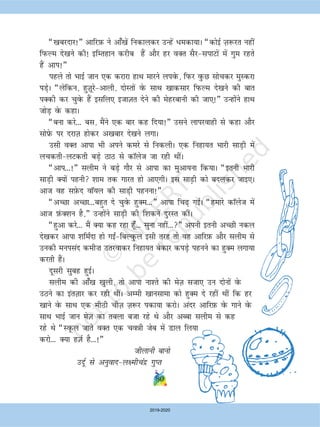 “खबरदार!” आरिफ़ ने आँखें निकालकर उन्हें धमकाया। “कोई ज़रूरत नहीं
फिल्म देखने की! इम्तिहान करीब हैं और हर वक्त सैर-सपाटों में गुम रहते
हैं आप!”
पहले तो भाई जान एक करारा हाथ मारने लपके, फिर कुछ सोचकर मुस्करा
पड़े। “लेकिन, हुज़ूरे-आली, दोस्तों के साथ खाकसार फिल्म देखने की बात
पक्की कर चुके हैं इसलिए इजाज़त देने की मेहरबानी की जाए!” उन्होंने हाथ
जोड़ के कहा।
“बना करे... बस, मैंने एक बार कह दिया!” उसने लापरवाही से कहा और
सोफ़े पर दराज़ होकर अखबार देखने लगा।
उसी वक्त आपा भी अपने कमरे से निकली। एक निहायत भारी साड़ी में
लचकती-लटकती बड़े ठाठ से कॉलेज जा रही थीं।
“आप...!” सलीम ने बड़े गौर से आपा का मुआयना किया। “इतनी भारी
साड़ी क्यों पहनी? शाम तक गारत हो जाएगी। इस साड़ी को बदलकर जाइए।
आज वह सफ़ेद वॉयल की साड़ी पहनना!”
“अच्छा अच्छा...बहुत दे चुके हुक्म...” आपा चिढ़ गईं। “हमारे कॉलेज में
आज फ़ंक्शन है,” उन्होंने साड़ी की शिकनें दुरुस्त कीं।
“हुआ करे... मैं क्या कह रहा हूँ... सुना नहीं...?” अपनी इतनी अच्छी नकल
देखकर आपा शर्मिंदा हो गईं-बिल्कुल इसी तरह तो वह आरिफ़ और सलीम से
उनकी मनपसंद कमीज़ उतरवाकर निहायत बेकार कपड़े पहनने का हुक्म लगाया
करती हैं।
दूसरी सुबह हुई।
सलीम की आँख खुली, तो आपा नाश्ते की मेज़ सजाए उन दोनों के
उठने का इंतज़ार कर रही थीं। अम्मी खानसामा को हुक्म दे रहीं थीं कि हर
खाने के साथ एक मीठी चीज़ ज़रूर पकाया करो। अंदर आरिफ़ के गाने के
साथ भाई जान मेज़ का तबला बजा रहे थे और अब्बा सलीम से कह
रहे थे “स्कूल जाते वक्त एक चवन्नी जेब में डाल लिया
करो... क्या हर्ज़ है...!”
जीलानी बानो
उर्दू से अनुवाद-लक्ष्मीचंद्र गुप्त
80
2019-2020